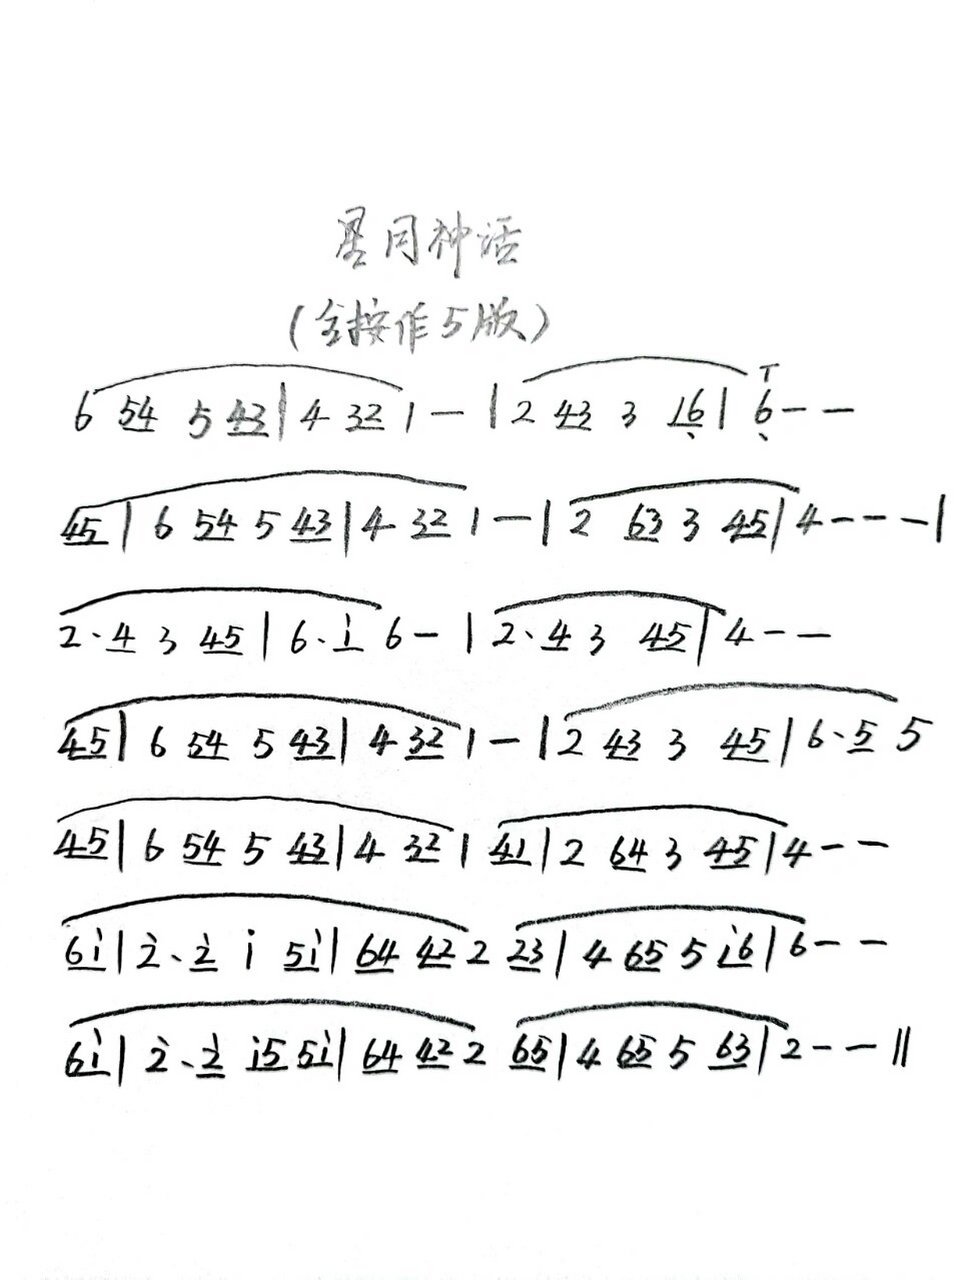 星月神话
(全按作5版)
6 54 5 43 | 4 32 1 — | 2 43 3 16̣ | 6̣ — —
45 | 6 54 5 43 | 4 32 1 — | 2 63 3 45 | 4 — — — |
2· 4 3 45 | 6· i 6 — | 2· 4 3 45 | 4 — —
45 | 6 54 5 43 | 4 32 1 — | 2 43 3 45 | 6· 5 5
45 | 6 54 5 43 | 4 32 1 41 | 2 64 3 45 | 4 — —
6i | 2̇· 2̇ i 5i | 64 42 2 23 | 4 65 5 i6 | 6 — —
6i | 2̇· 2̇ i5 5i | 64 42 2 65 | 4 65 5 63 | 2 — — ‖